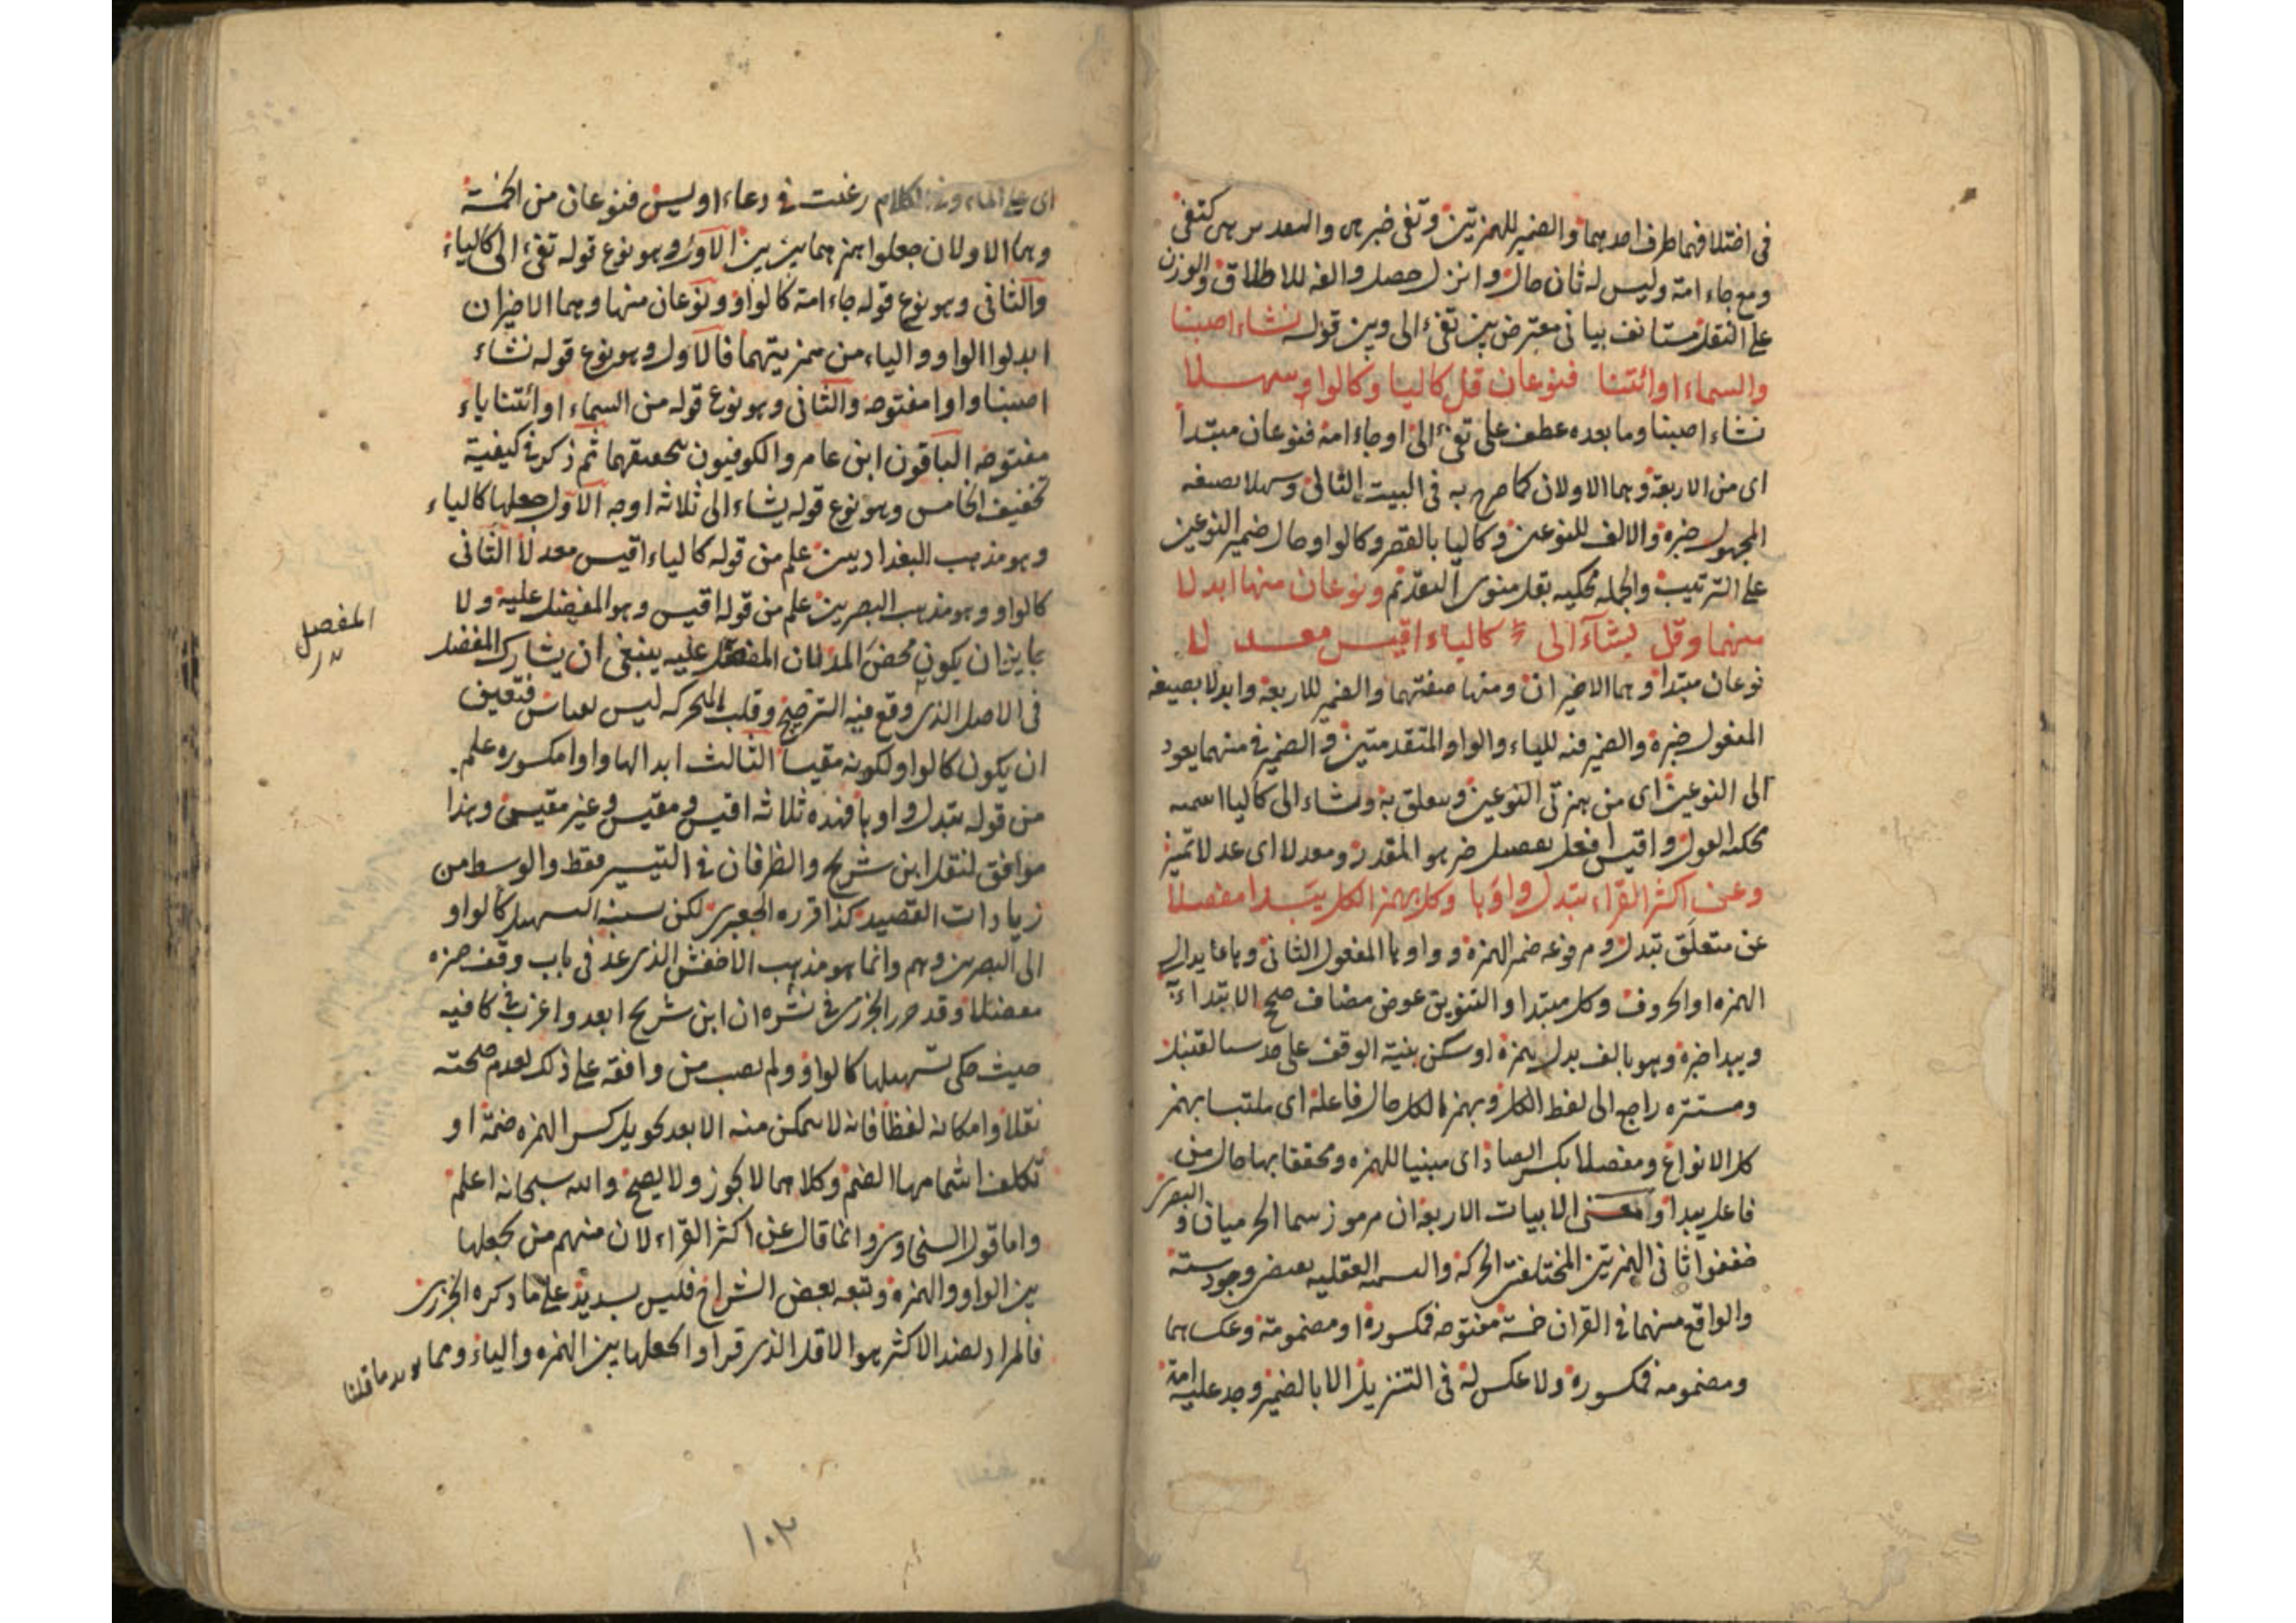 في اختلافهما ظرف احدهما والضمير للهمزتين وتفئ خبر هي والتقدير هي كتفئ
ومع جاء امة وليس له ثان حال وانزل حصل والفه للاطلاق والوزن
على النقل مستانف بياني معترض بين تفئ الى وبين قوله نشاء اصبنا
والسماء اوائتنا فنوعان قل كاليا وكالواو سهلا
نشاء اصبنا وما بعده عطف على تفئ الى او جاء امة فنوعان مبتدأ
اى من الاربعة وهما الاولان كما صرح به فى البيت الثاني وسهلا بصيغة
المجهول خبره والالف للنوعين وكاليا بالقصر وكالواو حال ضمير النوعين
على الترتيب والجملة محكية بقل منوى التقدم ونوعان منها ابدلا
منهما وقل يشاء الى كالياء اقيس معدلا
نوعان مبتدأ وهما الاخيران ومنها صفتهما والضمير للاربعة وابدلا بصيغة
المفعول خبره والضمير فيه للياء والواو المتقدمتين والضمير في منهما يعود
الى النوعين اى من همزتى النوعين وبتعلق به ويشاء الى كاليا اسمية
محكية القول واقيس افعل تفضيل خبر هو المقدر ومعدلا اى عدلا تميز
وعن اكثر القراء تبدل واوها وكل بهمز الكل يبدا مفصلا
عن متعلق تبدل ومرفوعه ضمير الهمزة وواوها المفعول الثاني وها عايد الى
الهمزة او الحروف وكل مبتدا والتنوين عوض مضاف صحح الابتداء به
ويبدا خبره وهو بالف بدل همزة او سكن بنية الوقف على حد سبا لقنبل
ومستتره راجع الى لفظ الكل وبهمز الكل حال فاعله اى ملتبسا بهمز
كل الانواع ومفصلا بكسر الصاد اى مبينا للهمزة ومحققا بها حال من
فاعل يبدا ومعنى الابيات الاربعة ان مرموز سما الحرميان و البصري
خففوا ثانى الهمزتين المختلفتى الحركة والقسمة العقلية يقتضى وجود ستة
والواقع منهما في القران خمسة مفتوحة فمكسورة او مضمومة وعكسهما
ومضمومة فمكسورة ولا عكس له فى التنزيل الا بالضمير وجد عليه امة
اى على الماء وفى الكلام رغبت في دعاء او ليس فنوعان من الخمسة
وهما الاولان جعلوا همزهما بين بين الاول وهو نوع قوله تفئ الى كالياء
والثانى وهو نوع قوله جاء امة كالواو ونوعان منها وهما الاخيران
ابدلوا الواو والياء من همزيتهما فالاول وهو نوع قوله نشاء
اصبنا واوا مفتوحة والثانى وهو نوع قوله من السماء اوائتنا ياء
مفتوحة الباقون ابن عامر والكوفيون بتحقيقهما ثم ذكر في كيفية
تخفيف الخامس وهو نوع قوله يشاء الى ثلاثه اوجه الاول جعلها كالياء
وهو مذهب البغداديين علم من قوله كالياء اقيس معدلا الثانى
كالواو وهو مذهب البصريين علم من قوله اقيس وهو المفضل عليه ولا
جايز ان يكون محض المد لان المفضل عليه ينبغى ان يشارك المفضل
فى الاصل الذى وقع فيه الترجيح وقلب المتحركة ليس بقياس فتعين
ان يكون كالواو لكونه مقيسا الثالث ابدالها واوا مكسورة علم
من قوله تبدل واوها فهذه ثلاثة اقيس ومقيس وغير مقيس وهذا
موافق لنقل ابن شريح والطرفان في التيسير فقط والوسط من
زيادات القصيد كذا قرره الجعبرى لكن نسبة التسهيل كالواو
الى البصريين وهم وانما هو مذهب الاخفش الذى عد فى باب وقف حمزة
معضلا وقد حرر الجزرى في نشره ان ابن شريح ابعد واغرب في كافيه
حيث حكى تسهيلها كالواو ولم يصب من وافقه على ذلك لعدم صحته
نقلا وامكانه لفظا فانه لا يتمكن منه الا بعد تحويل كسر الهمزة ضمة او
تكلف اشمامها الضم وكلاهما لا يجوز ولا يصح والله سبحانه اعلم
واما قول السخاوى وانما قال عن اكثر القراء لان منهم من يجعلها
بين الواو والهمزة وتبعه بعض الشراح فليس بسديد على ما ذكره الجزرى
فالمراد بضد الاكثر هو الاقل الذى قراوا بجعلها بين الهمزة والياء ومما يؤيد ما قلنا
المفصل
١٠٣